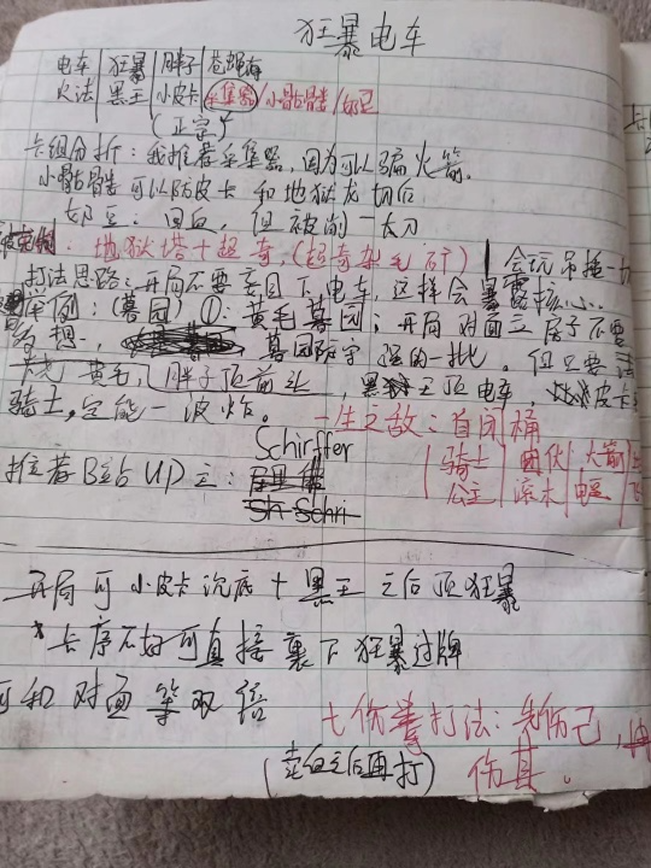 狂暴电车
电车|狂暴|胖子|苍蝇海
火法|黑王|小皮卡|采集器/小骷髅/奶豆
(正宗)
卡组分析：我推荐采集器，因为可以骗火箭。
小骷髅可以防皮卡和地狱龙切后
奶豆：回血，但被削一大刀
地狱塔+超奇，(超奇杂毛石矿)|会玩吊捶一切
打法思路：开局不要妄图下电车，这样会暴露核心..
举例：(墓园)①：黄毛墓园；开局对面三房子不要
多想，墓园防守强的一批。但只要法
烧黄毛，胖子顶前头，黑王顶电车，皮卡
骑士，定能一波炸。
一生之敌：自闭桶
Schirffer
|骑士|囤伙|火箭|
推荐B站UP主：
公主|滚木|电
Sh Schri
开局可小皮卡沉底+黑王之后顶狂暴
*卡序不好可直接裹下狂暴过牌
可和对面等双倍
七伤拳打法：先伤己，
(卖血之后再打)
伤其。